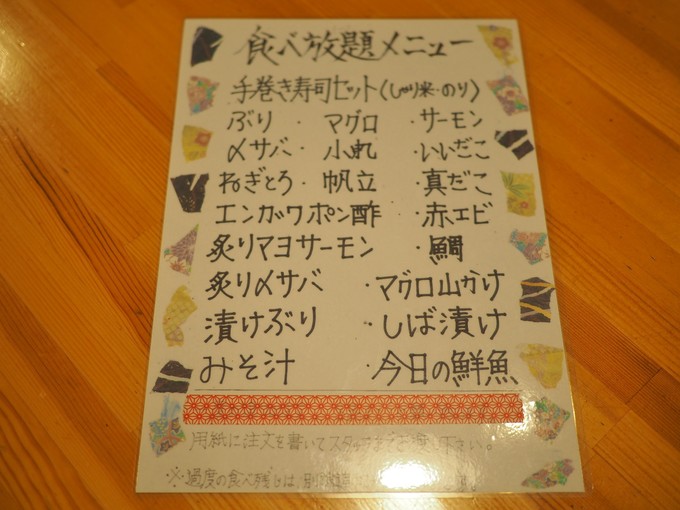 食べ放題メニュー
手巻き寿司セット(しゃり米・のり)
ぶり ・ マグロ ・サーモン
〆サバ ・ 小肌 ・いいだこ
ねぎとろ ・ 帆立 ・真だこ
エンガワポン酢 ・赤エビ
炙りマヨサーモン ・鯛
炙り〆サバ ・マグロ山かけ
漬けぶり ・しば漬け
みそ汁 ・今日の鮮魚
用紙に注文を書いてスタッフ 下さい。
※過度の食べ残しは、別